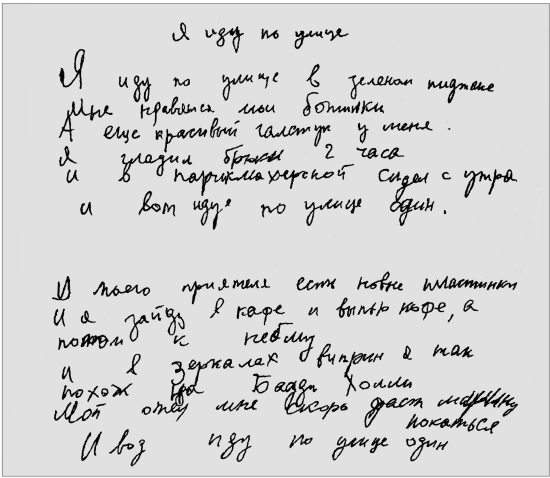 Я иду по улице
Я иду по улице в зеленом пиджаке
Мне нравятся мои ботинки
А еще красивый галстук у меня.
Я гладил брюки 2 часа
и в парикмахерской сидел с утра
и вот иду по улице один.
У моего приятеля есть новые пластинки
И я зайду в кафе и выпью кофе, а
потом к нему
и в зеркалах витрин я так
похож на Бадди Холли
Мой отец мне скоро даст машину
покаться
И воз иду по улице один